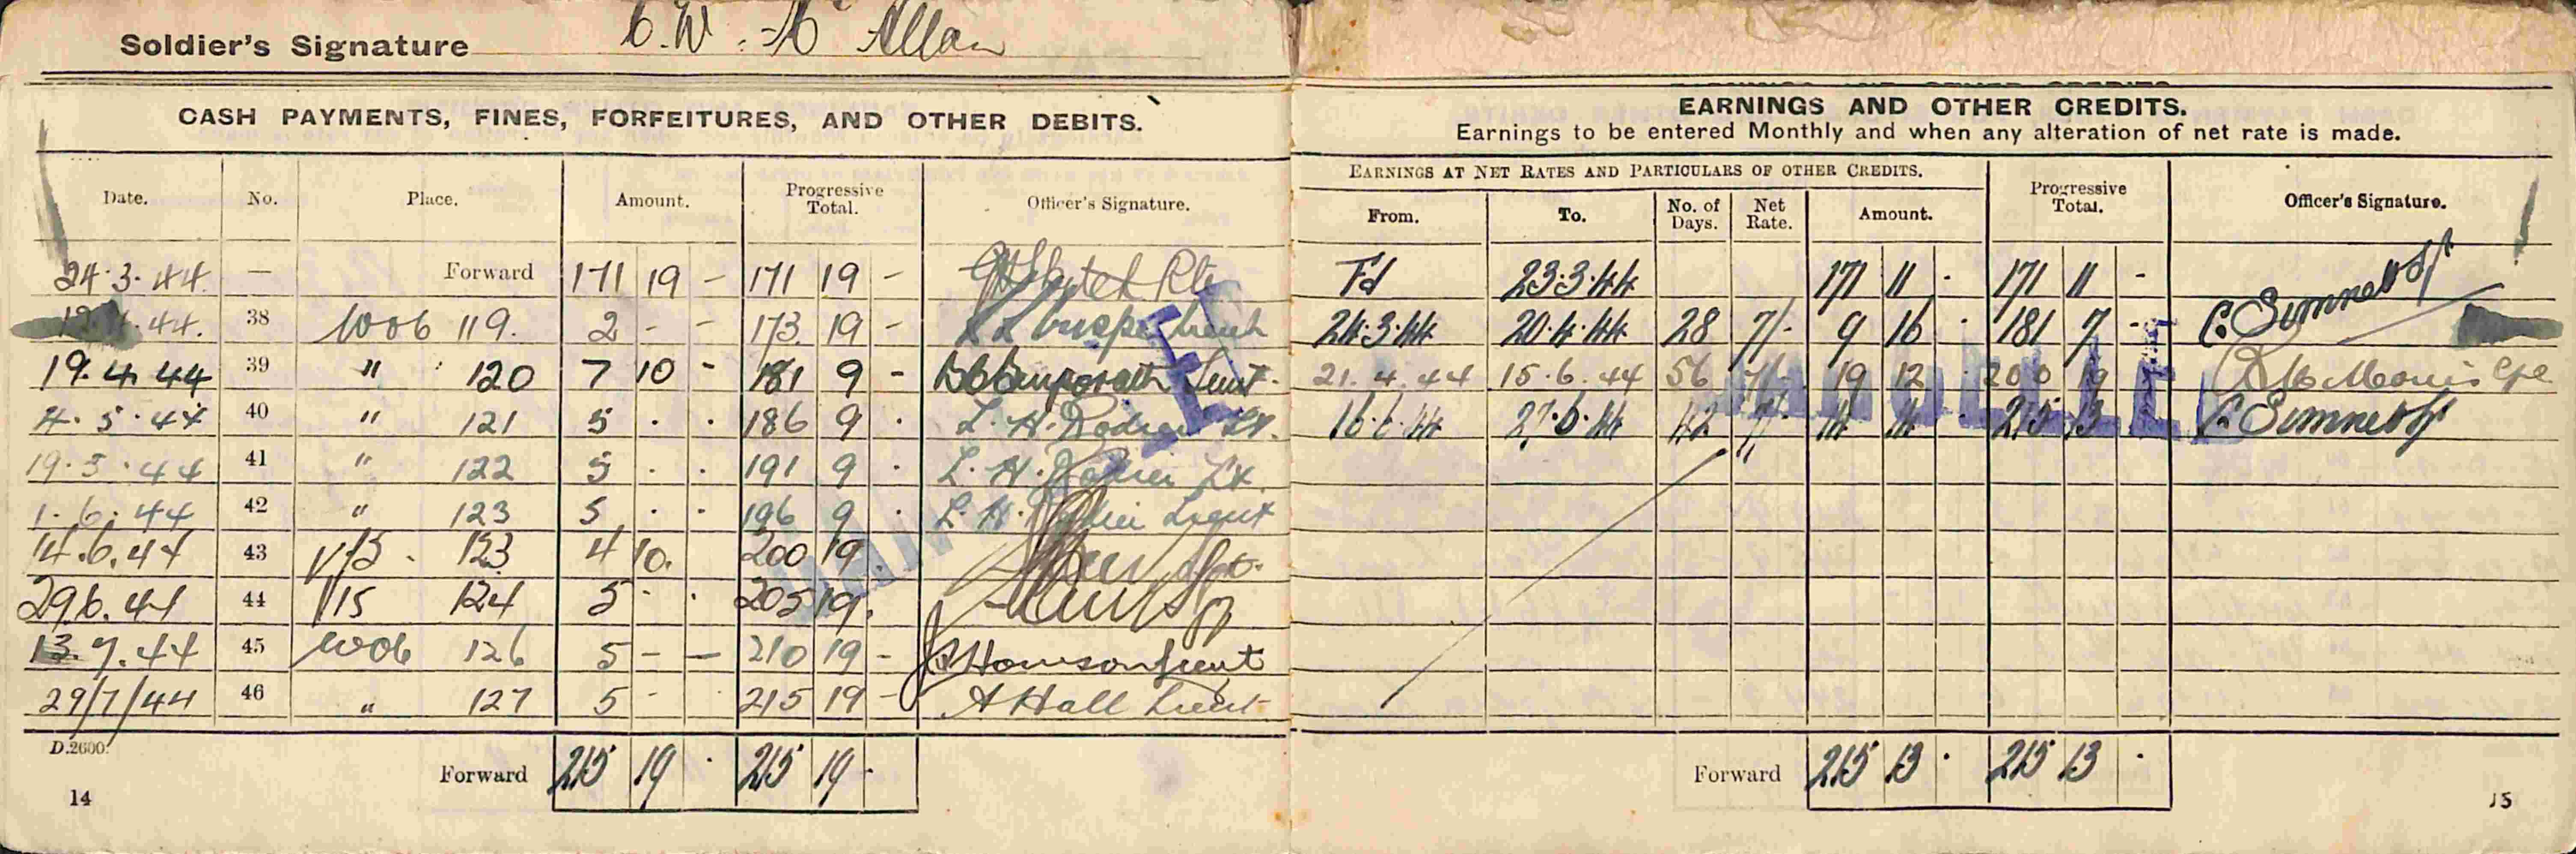 Soldier's Signature C.W. Mc Allan
CASH PAYMENTS, FINES, FORFEITURES, AND OTHER DEBITS.
Date. No. Place. Amount. Progressive Total. Officer's Signature.
24.3.44. — Forward 171 19 - 171 19 -
.44. 38 WOOB 119. 2 - - 173. 19 - Lieut
19.4.44 39 " 120 7 10 - 181 9 - Lieut.
4.5.44 40 " 121 5 . . 186 9 . L. H. Lt.
19.5.44 41 " 122 5 . . 191 9 . L. H. Lt.
1.6.44 42 " 123 5 . . 196 9 . L. H. Lieut
14.6.44 43 123 4 10. 200 19
29.6.44 44 124 5 . . 205 19.
13.7.44 45 WOOB 126 5 - — 210 19 - Lieut
29/7/44 46 " 127 5 - 215 19 - A Hall Lieut
D.2600.
Forward 215 19 . 215 19 .
14
EARNINGS AND OTHER CREDITS.
Earnings to be entered Monthly and when any alteration of net rate is made.
EARNINGS AT NET RATES AND PARTICULARS OF OTHER CREDITS. Progressive Total. Officer's Signature.
From. To. No. of Days. Net Rate. Amount.
Fd 23.3.44 171 11 . 171 11 -
24.3.44 20.4.44 28 7/- 9 16 . 181 7 - C. Sumner
21.4.44 15.6.44 56 7/- 19 12 200 19 Cpl
16.6.44 27.6.44 42 7/- 14 14 215 13 C. Sumner
Forward 215 13 . 215 13 .
15